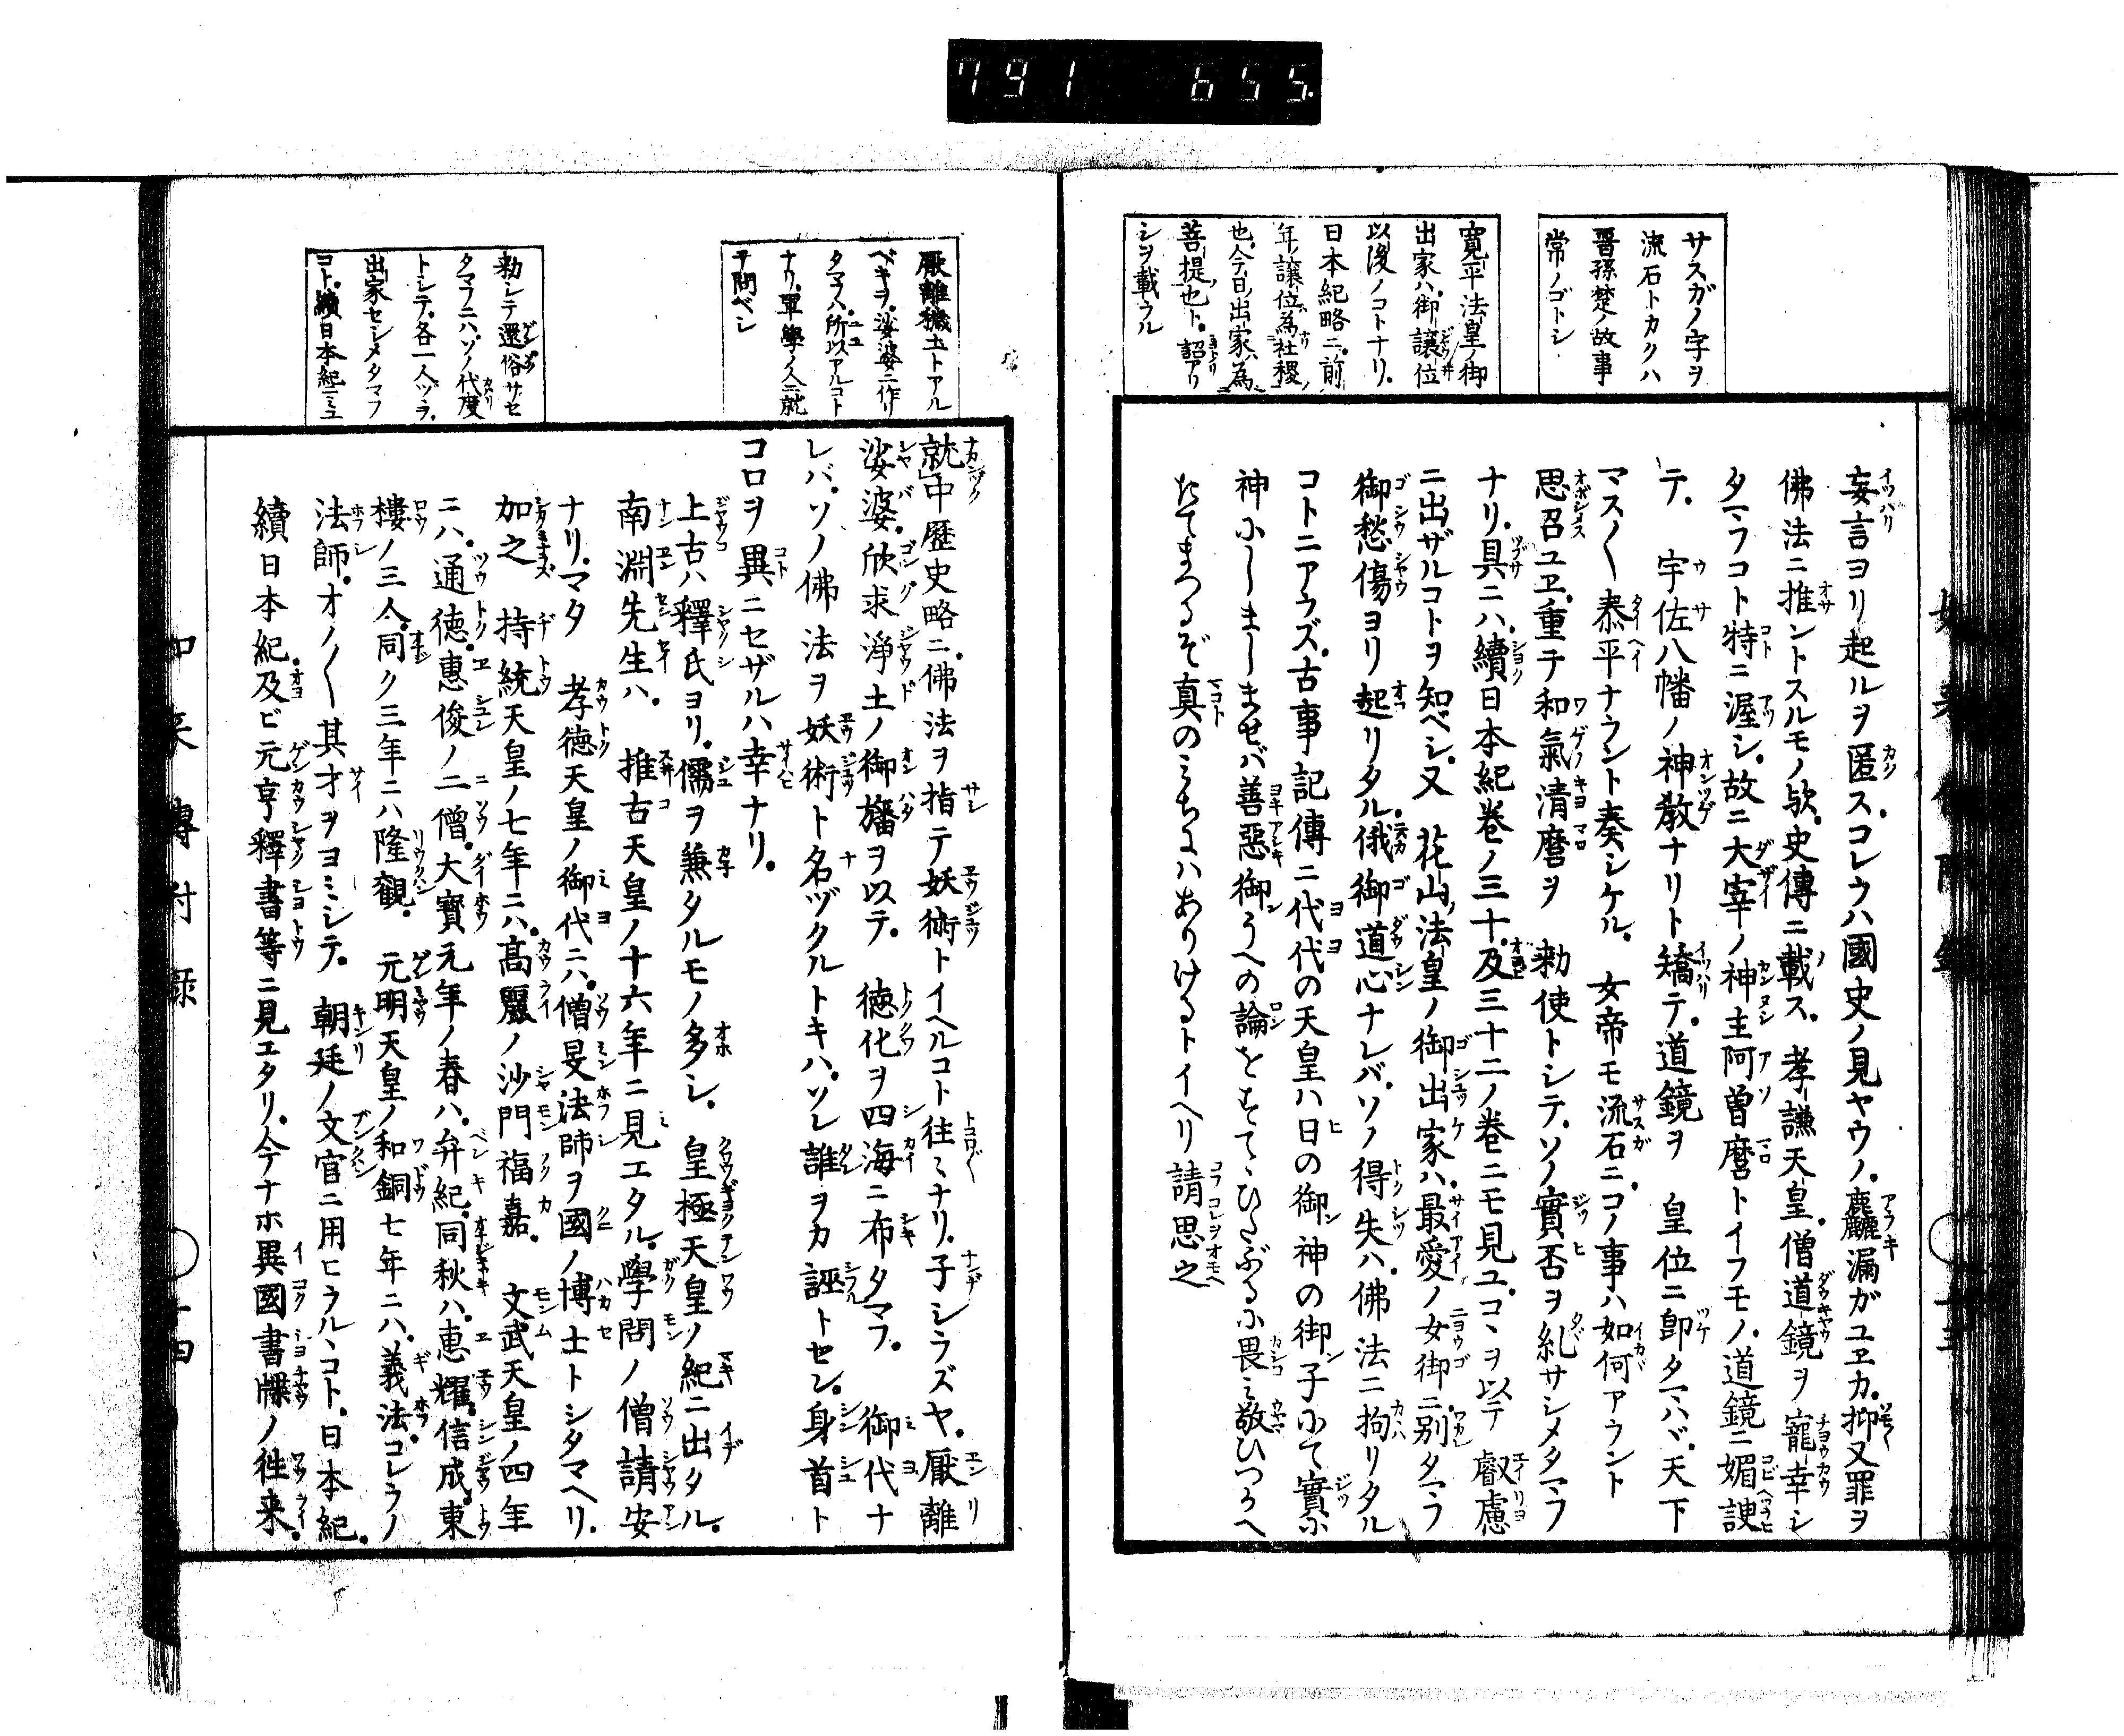 791 655
サスガノ字ヲ
流石トカクハ
晋孫楚ノ故事
常ノゴトシ
寛平法皇ノ御
出家ハ御讓位
以後ノコトナリ
日本紀略ニ前
年讓位為社稷
也今日出家為
菩提也ト詔アリ
シヲ載タル
妄言ヨリ起ルヲ匿ス。コレラハ國史ノ見ヤウノ。麤漏ガユヱカ。抑又罪ヲ
佛法ニ推ントスルモノ欤。史傳ニ載ス。孝謙天皇。僧道鏡ヲ寵幸シ
タマフコト特ニ渥シ。故ニ大宰ノ神主阿曽麿トイフモノ。道鏡ニ媚諛
テ。宇佐八幡ノ神教ナリト矯テ。道鏡ヲ 皇位ニ卽タマハバ。天下
マス〳〵泰平ナラント奏シケル。女帝モ流石ニ。コノ事ハ如何アラント
思召ユヱ。重テ和氣清麿ヲ 勅使トシテ。ソノ實否ヲ糺サシメタマフ
ナリ。具ニハ。續日本紀巻ノ三十。及三十二ノ巻ニモ見ユ。コヽヲ以テ 叡慮
ニ出ザルコトヲ知ベシ。又 花山法皇ノ御出家ハ。最愛ノ女御ニ別タマフ
御愁傷ヨリ起リタル。俄御道心ナレバ。ソノ得失ハ。佛法ニ拘リタル
コトニアラズ。古事記傳ニ代代の天皇ハ日の御神の御子にて實に
神にしましませバ善惡御うへの論をすてゝひたぶるに畏ミ敬ひつかへ
たてまつるぞ真のミちにハありけるトイヘリ請思之
厭離穢土トアル
ベキヲ。娑婆ニ作リ
タマフハ。所以アルコト
ナリ。軍學ノ人ニ就
テ問ベシ
勅シテ還俗サセ
タマフニハ。ソノ代度
トシテ。各一人ヅヽヲ。
出家セシメタマフ
コト。續日本紀ニミユ
就中歷史略ニ。佛法ヲ指テ妖術トイヘルコト往々ナリ。子シラズヤ。厭離
娑婆。欣求淨土ノ御旛ヲ以テ。德化ヲ四海ニ布タマフ。御代ナ
レバ。ソノ佛法ヲ妖術ト名ヅクルトキハ。ソレ誰ヲカ誣トセン。身首ト
コロヲ異ニセザルハ幸ナリ。
上古ハ釋氏ヨリ。儒ヲ兼タルモノ多シ。皇極天皇ノ紀ニ出タル。
南淵先生ハ。推古天皇ノ十六年ニ見エタル。學問ノ僧請安
ナリ。マタ 孝德天皇ノ御代ニハ。僧旻法師ヲ國ノ博士トシタマヘリ。
加之 持統天皇ノ七年ニハ。高麗ノ沙門福嘉。 文武天皇ノ四年
ニハ。通德。惠俊ノ二僧。大寳元年ノ春ハ。弁紀。同秋ハ。惠耀。信成。東
樓ノ三人。同ク三年ニハ隆観。元明天皇ノ和銅七年ニハ。義法コレラノ
法師。オノ〳〵其才ヲヨミシテ。朝廷ノ文官ニ用ヒラルヽコト。日本紀。
續日本紀。及ビ元亨釋書等ニ見エタリ。今ナホ異國書牒ノ徃来。
如来傳附録 十四